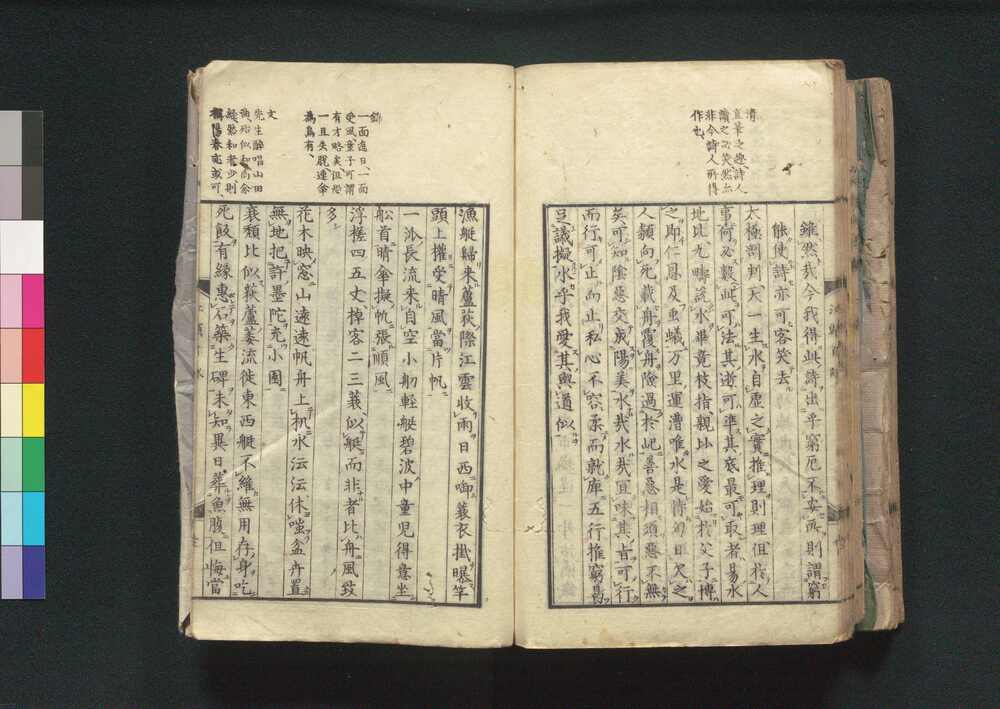 清
直筆之趣詩人
讀之必笑然亦
非今詩人所得
作也
雖然我今我得此詩出乎窮厄不安而則謂窮
能使詩亦可客笑去
太極剖判天一生水自虛之實推理則理但於人
事尚必驗此可法其逝可準其底最可取者易水
地比九疇說水畢竟枝指親比之愛始於父子博
之即仁恩及虫蟻万里運漕唯水是待勿曰欠之
人類向死載舟覆舟險過於屺善惡相須惡不無
矣可知陰惡交成陽美水哉水哉宜味其旨可行
而行可止而止私心不容柔而就庫五行推窮易
豈議擬水乎我愛其與道似
錦
一面遮日一面
受風童子可謂
有才略矣但恐
一旦失脫連傘
為烏有
文
先生醉唱山田
翁殆似和尚念
經聽和者少則
稱陽春亮或可
漁艇歸來蘆荻際江雲收雨日西啣蓑衣撒曝竿
頭上權受晴風當片帆
一派長流來自空小舠輕艇碧波中童兒得意坐
船首晴傘擬帆張順風
浮槎四五丈棹客二三蓑似艇而非者比舟風致
多
花木映窓山遠遠帆舟上机水沄沄休嗤盆卉置
無地把許墨陀充小園
衰頽比似荻蘆萎流徙東西艇不維無用存身吃
死餃有緣惠石藥生碑未知異日葬魚腹但悔當